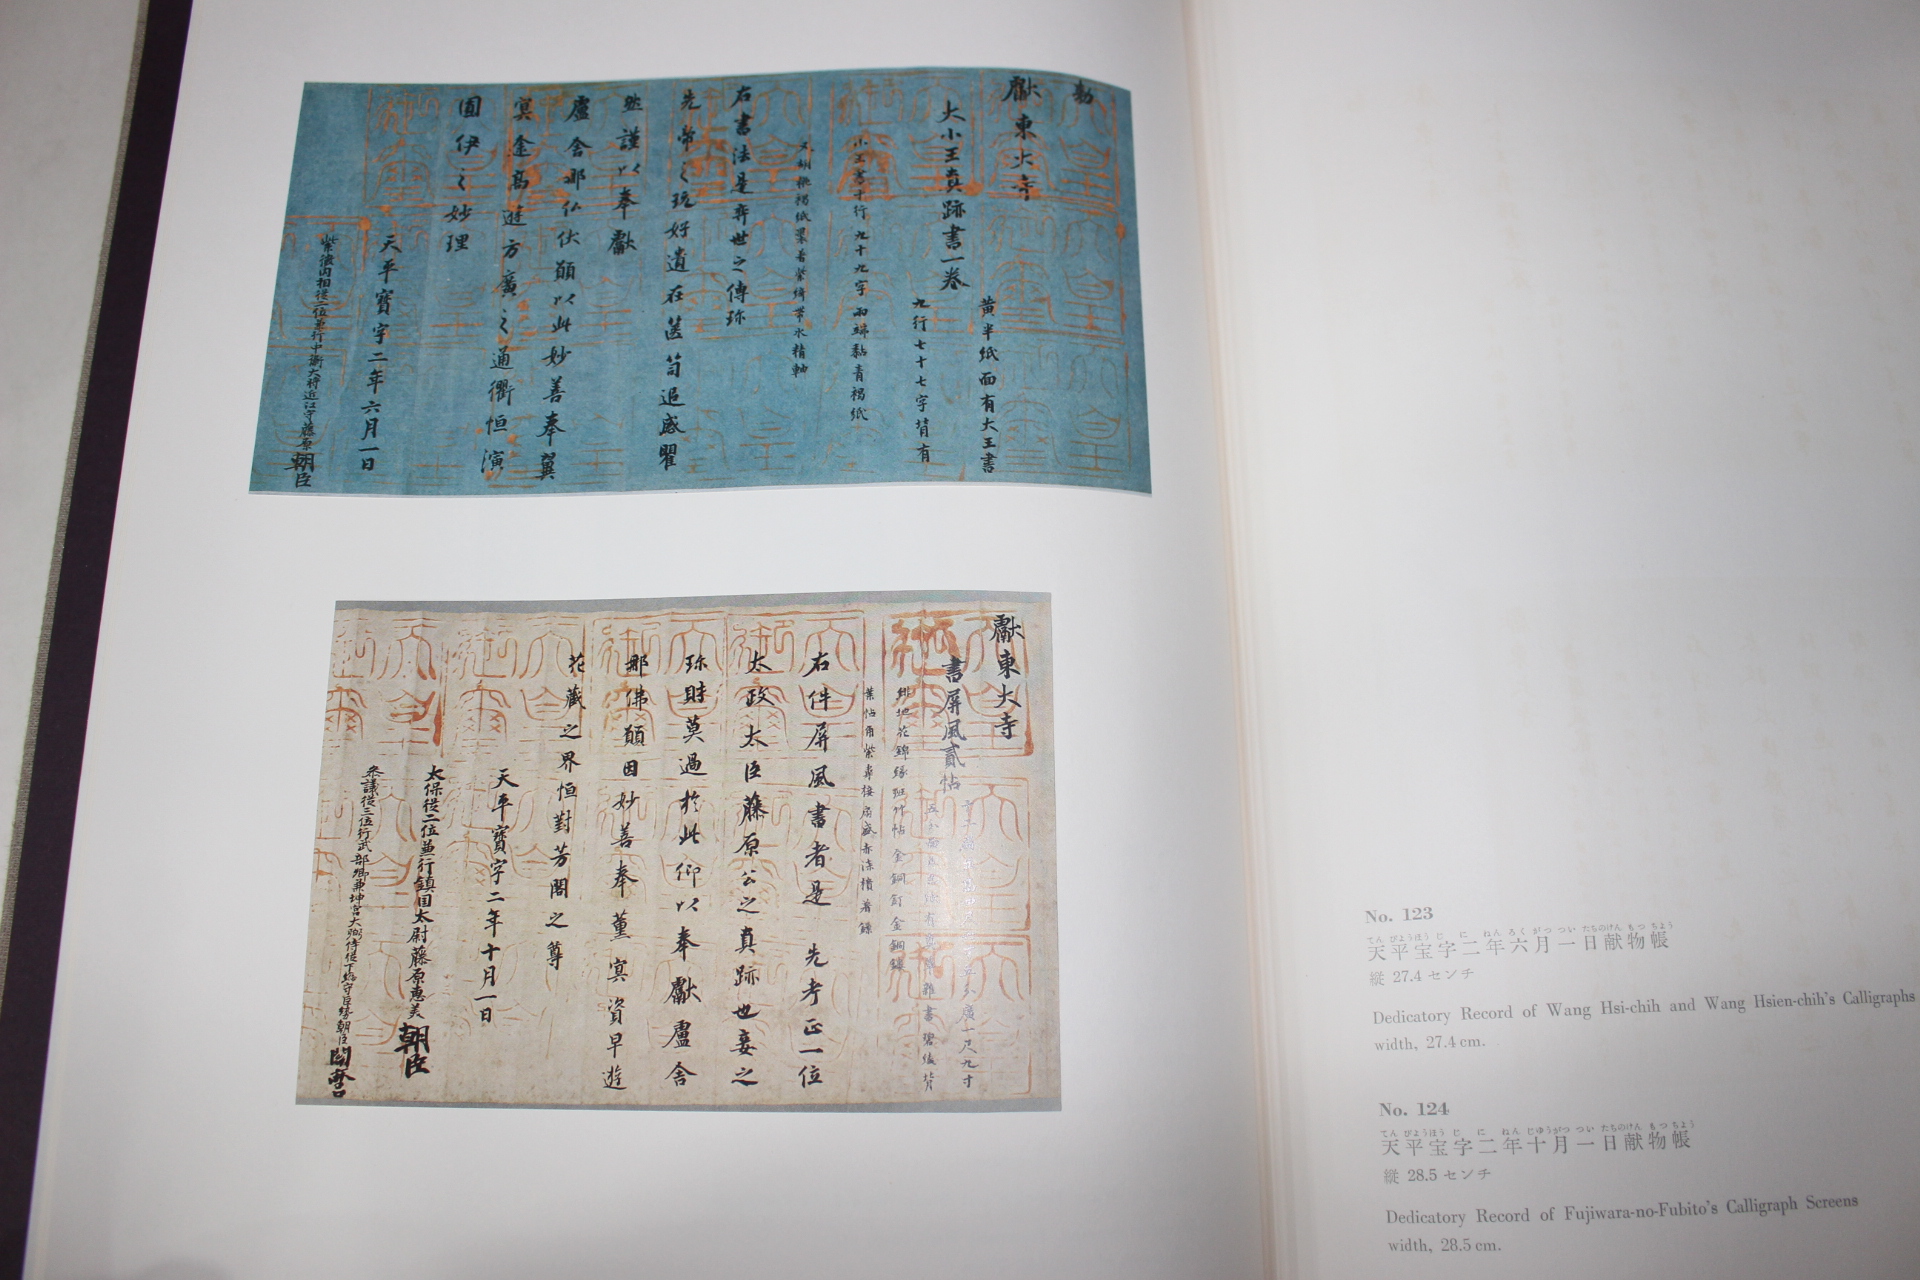 勅
獻東大寺
大小王真跡書一卷
黄半紙面有大王書
九行七十七字背有
小王書十行九十九字兩端黏青褐紙
又胡桃褐紙裹著紫綺帶水精軸
右書法是奕世之傳珎
先帝之玩好遺在篋笥追感瞿
然謹以奉獻
盧舍那仏伏願以此妙善奉翼
冥途高遊方廣之通衢恒演
圓伊之妙理
天平寶字二年六月一日
紫微内相從二位兼行中衛大將近江守藤原朝臣
獻東大寺
書屏風貳帖
緋地花錦緣班竹帖金銅釘金銅鏁
葉帖角紫皮接扇
右件屏風書者是 先考正一位
太政太臣藤原公之真跡也妾之
珎財莫過於此仰以奉獻盧舍
那佛願因妙善奉薫冥資早遊
花藏之界恒對芳閣之尊
天平寶字二年十月一日
太保從二位兼行鎮国太尉藤原惠美朝臣
參議從三位行武部卿兼坤宮大弼侍從下総守巨勢朝臣関麿
No. 123
てんぴょうほうじにねんろくがつついたちのけんもつちょう
天平宝字二年六月一日献物帳
縦 27.4 センチ
Dedicatory Record of Wang Hsi-chih and Wang Hsien-chih's Calligraphs
width, 27.4 cm.
No. 124
てんぴょうほうじにねんじゅうがつついたちのけんもつちょう
天平宝字二年十月一日献物帳
縦 28.5 センチ
Dedicatory Record of Fujiwara-no-Fubito's Calligraph Screens
width, 28.5 cm.